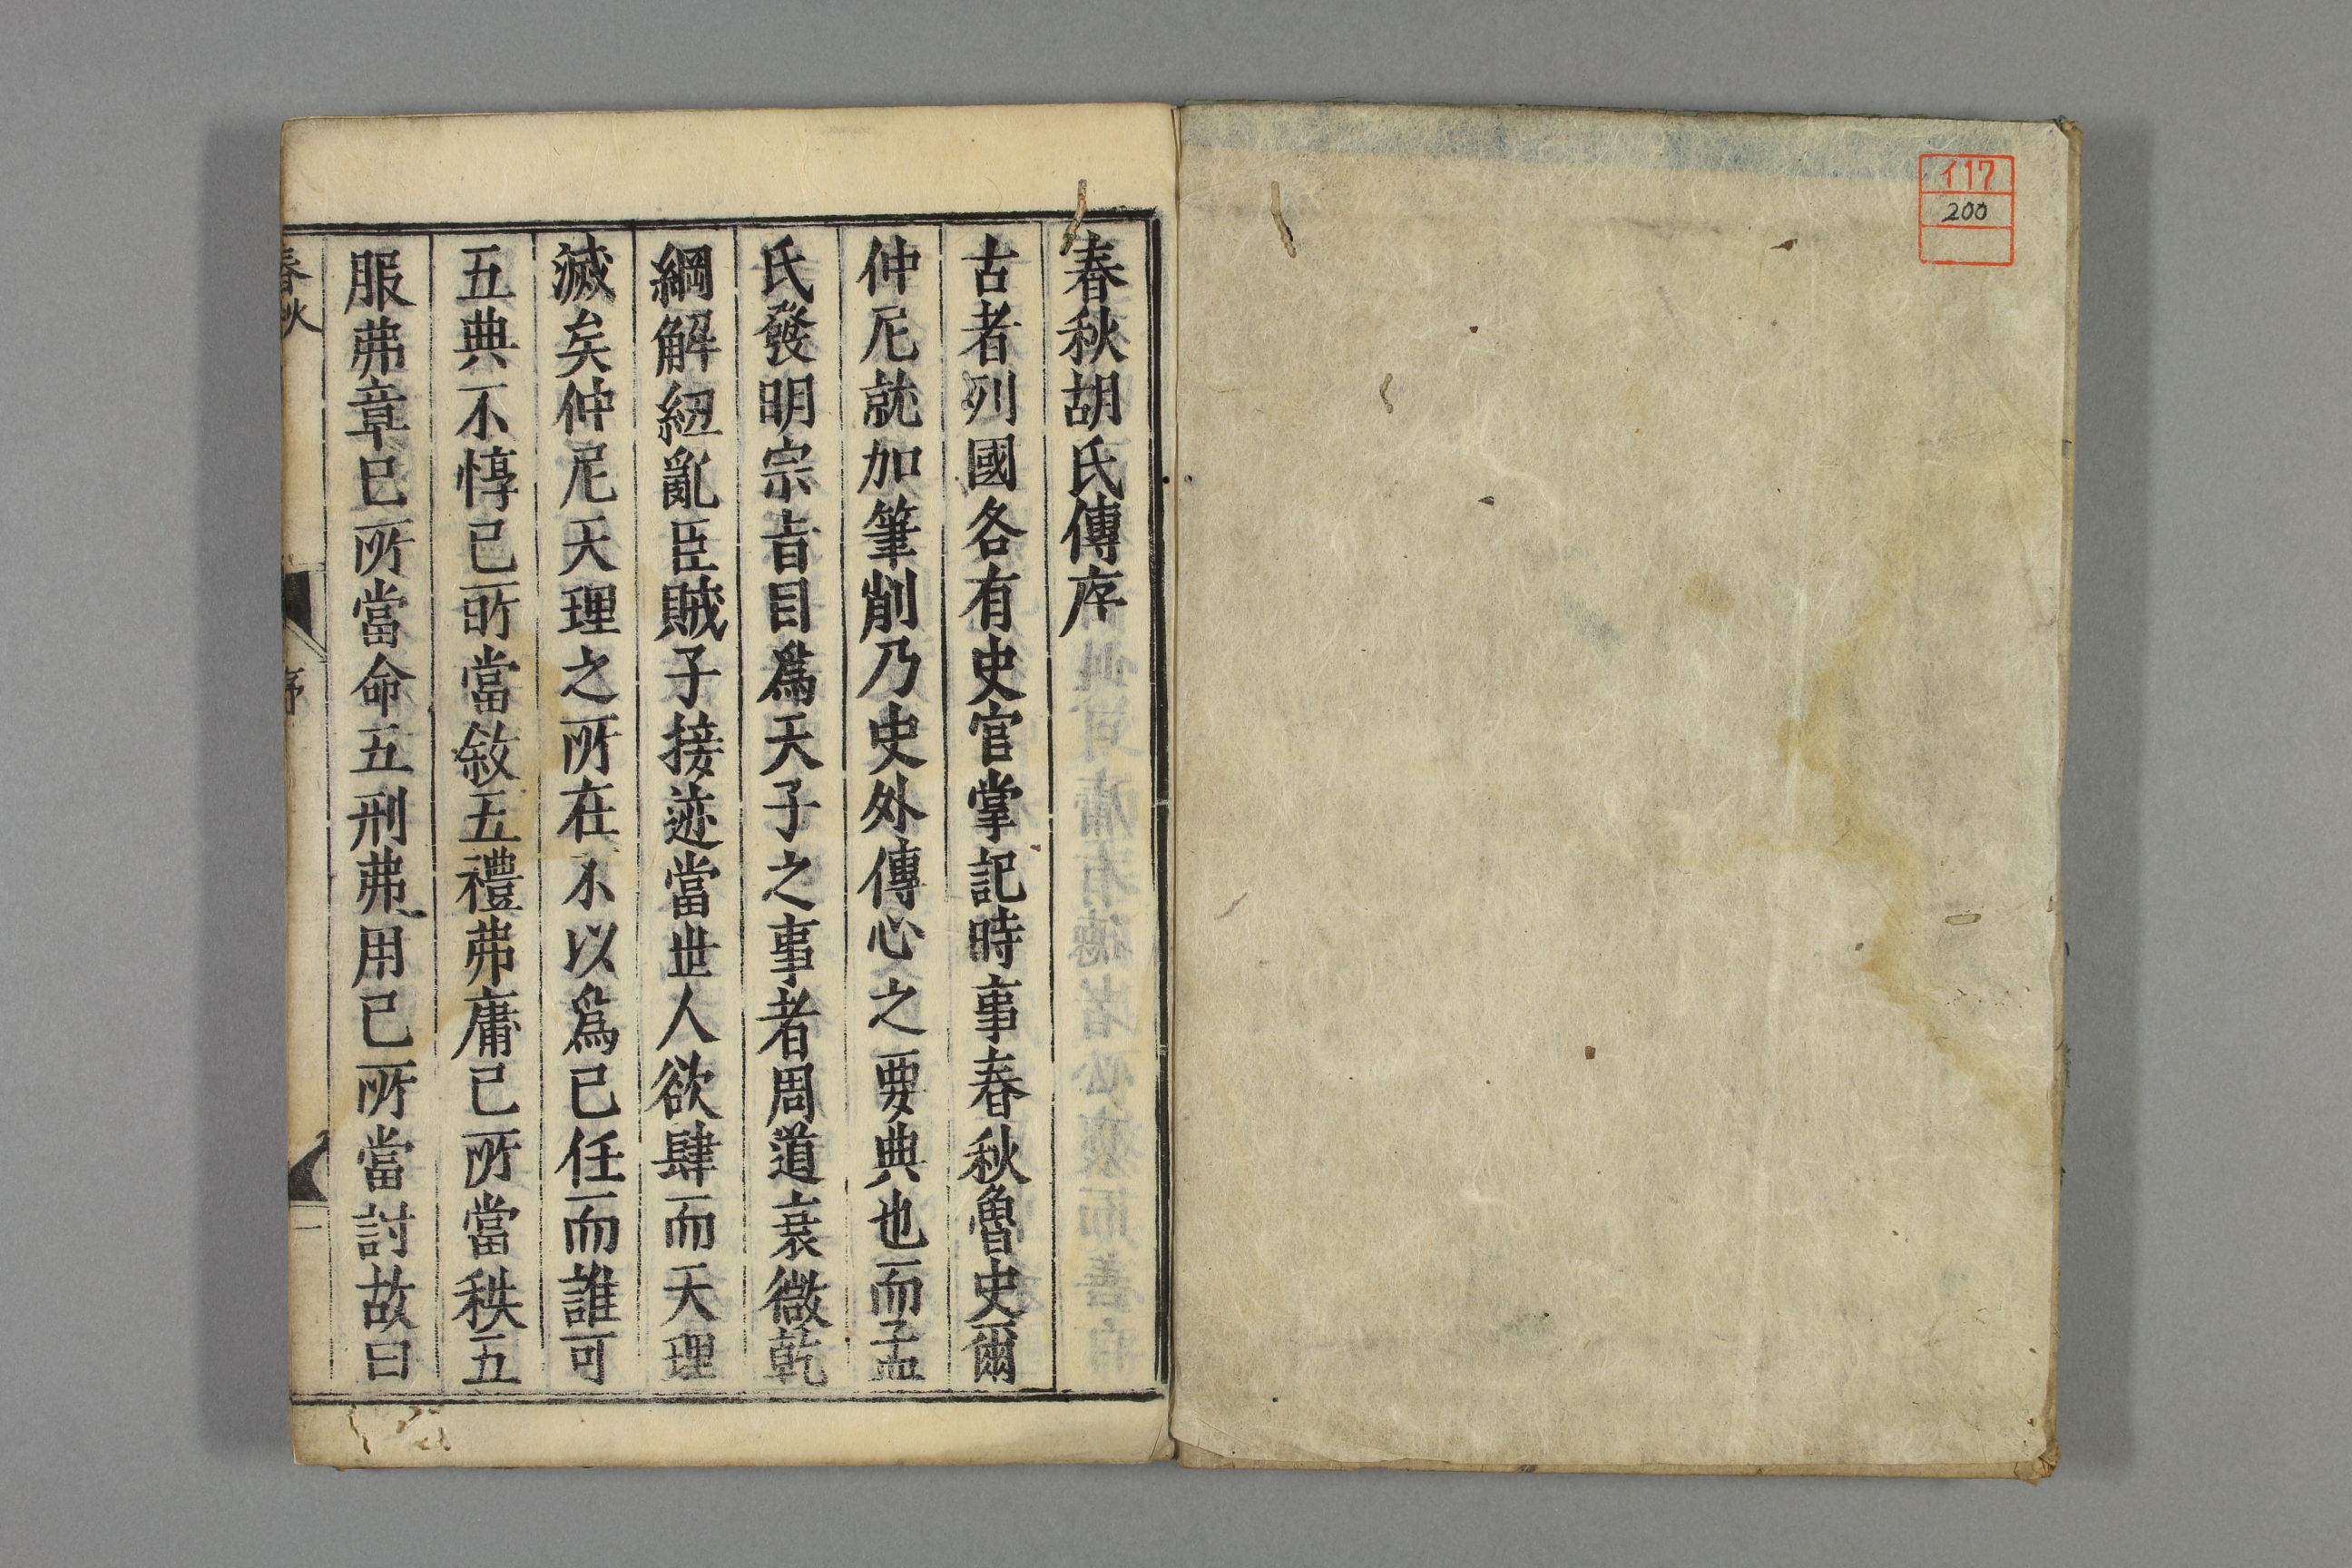 イ17
200
春秋胡氏傳序
古者列國各有史官掌記時事春秋魯史爾
仲尼就加筆削乃史外傳心之要典也而孟
氏發明宗旨目爲天子之事者周道衰微乾
綱解紐亂臣賊子接迹當世人欲肆而天理
滅矣仲尼天理之所在不以爲己任而誰可
五典不惇己所當敘五禮弗庸己所當秩五
服弗章己所當命五刑弗用己所當討故曰
春秋
序
一